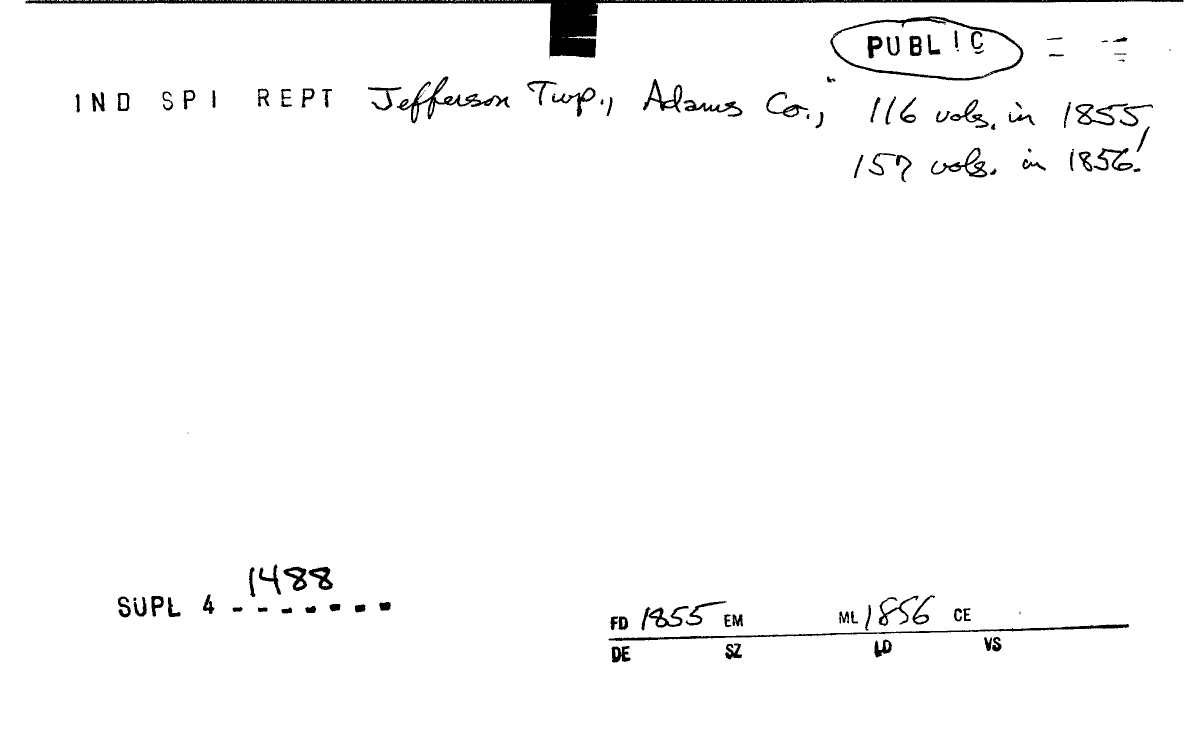 PUBLIC
IND SPI REPT Jefferson Twp., Adams Co., " 116 vols. in 1855,
157 vols. in 1856!
1488
SUPL 4 - - - - - - -
FD 1855 EM ML 1856 CE
DE SZ LD VS